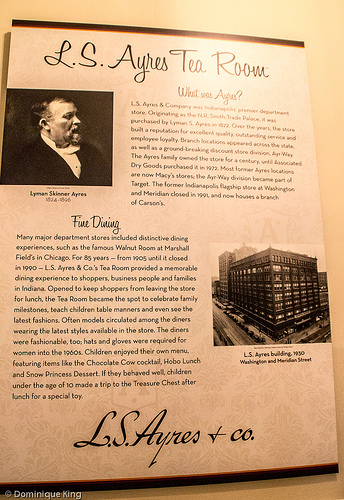 L.S. Ayres Tea Room
What was Ayres?
L.S. Ayres & Company was Indianapolis' premier department
store. Originating as the N.R. Smith Trade Palace, it was
purchased by Lyman S. Ayres in 1872. Over the years, the store
built a reputation for excellent quality, outstanding service and
employee loyalty. Branch locations appeared across the state,
as well as a ground-breaking discount store division, Ayr-Way.
The Ayres family owned the store for a century, until Associated
Dry Goods purchased it in 1972. Most former Ayres locations
are now Macy's stores; the Ayr-Way division became part of
Target. The former Indianapolis flagship store at Washington
and Meridian closed in 1991, and now houses a branch
of Carson's.
Lyman Skinner Ayres
1824-1896
Fine Dining
Many major department stores included distinctive dining
experiences, such as the famous Walnut Room at Marshall
Field's in Chicago. For 85 years – from 1905 until it closed
in 1990 – L.S. Ayres & Co.'s Tea Room provided a memorable
dining experience to shoppers, business people and families
in Indiana. Opened to keep shoppers from leaving the store
for lunch, the Tea Room became the spot to celebrate family
milestones, teach children table manners and even see the
latest fashions. Often models circulated among the diners
wearing the latest styles available in the store. The diners
were fashionable, too; hats and gloves were required for
women into the 1960s. Children enjoyed their own menu,
featuring items like the Chocolate Cow cocktail, Hobo Lunch
and Snow Princess Dessert. If they behaved well, children
under the age of 10 made a trip to the Treasure Chest after
lunch for a special toy.
L.S. Ayres building, 1930
Washington and Meridian Street
L.S. Ayres + co.
© Dominique King